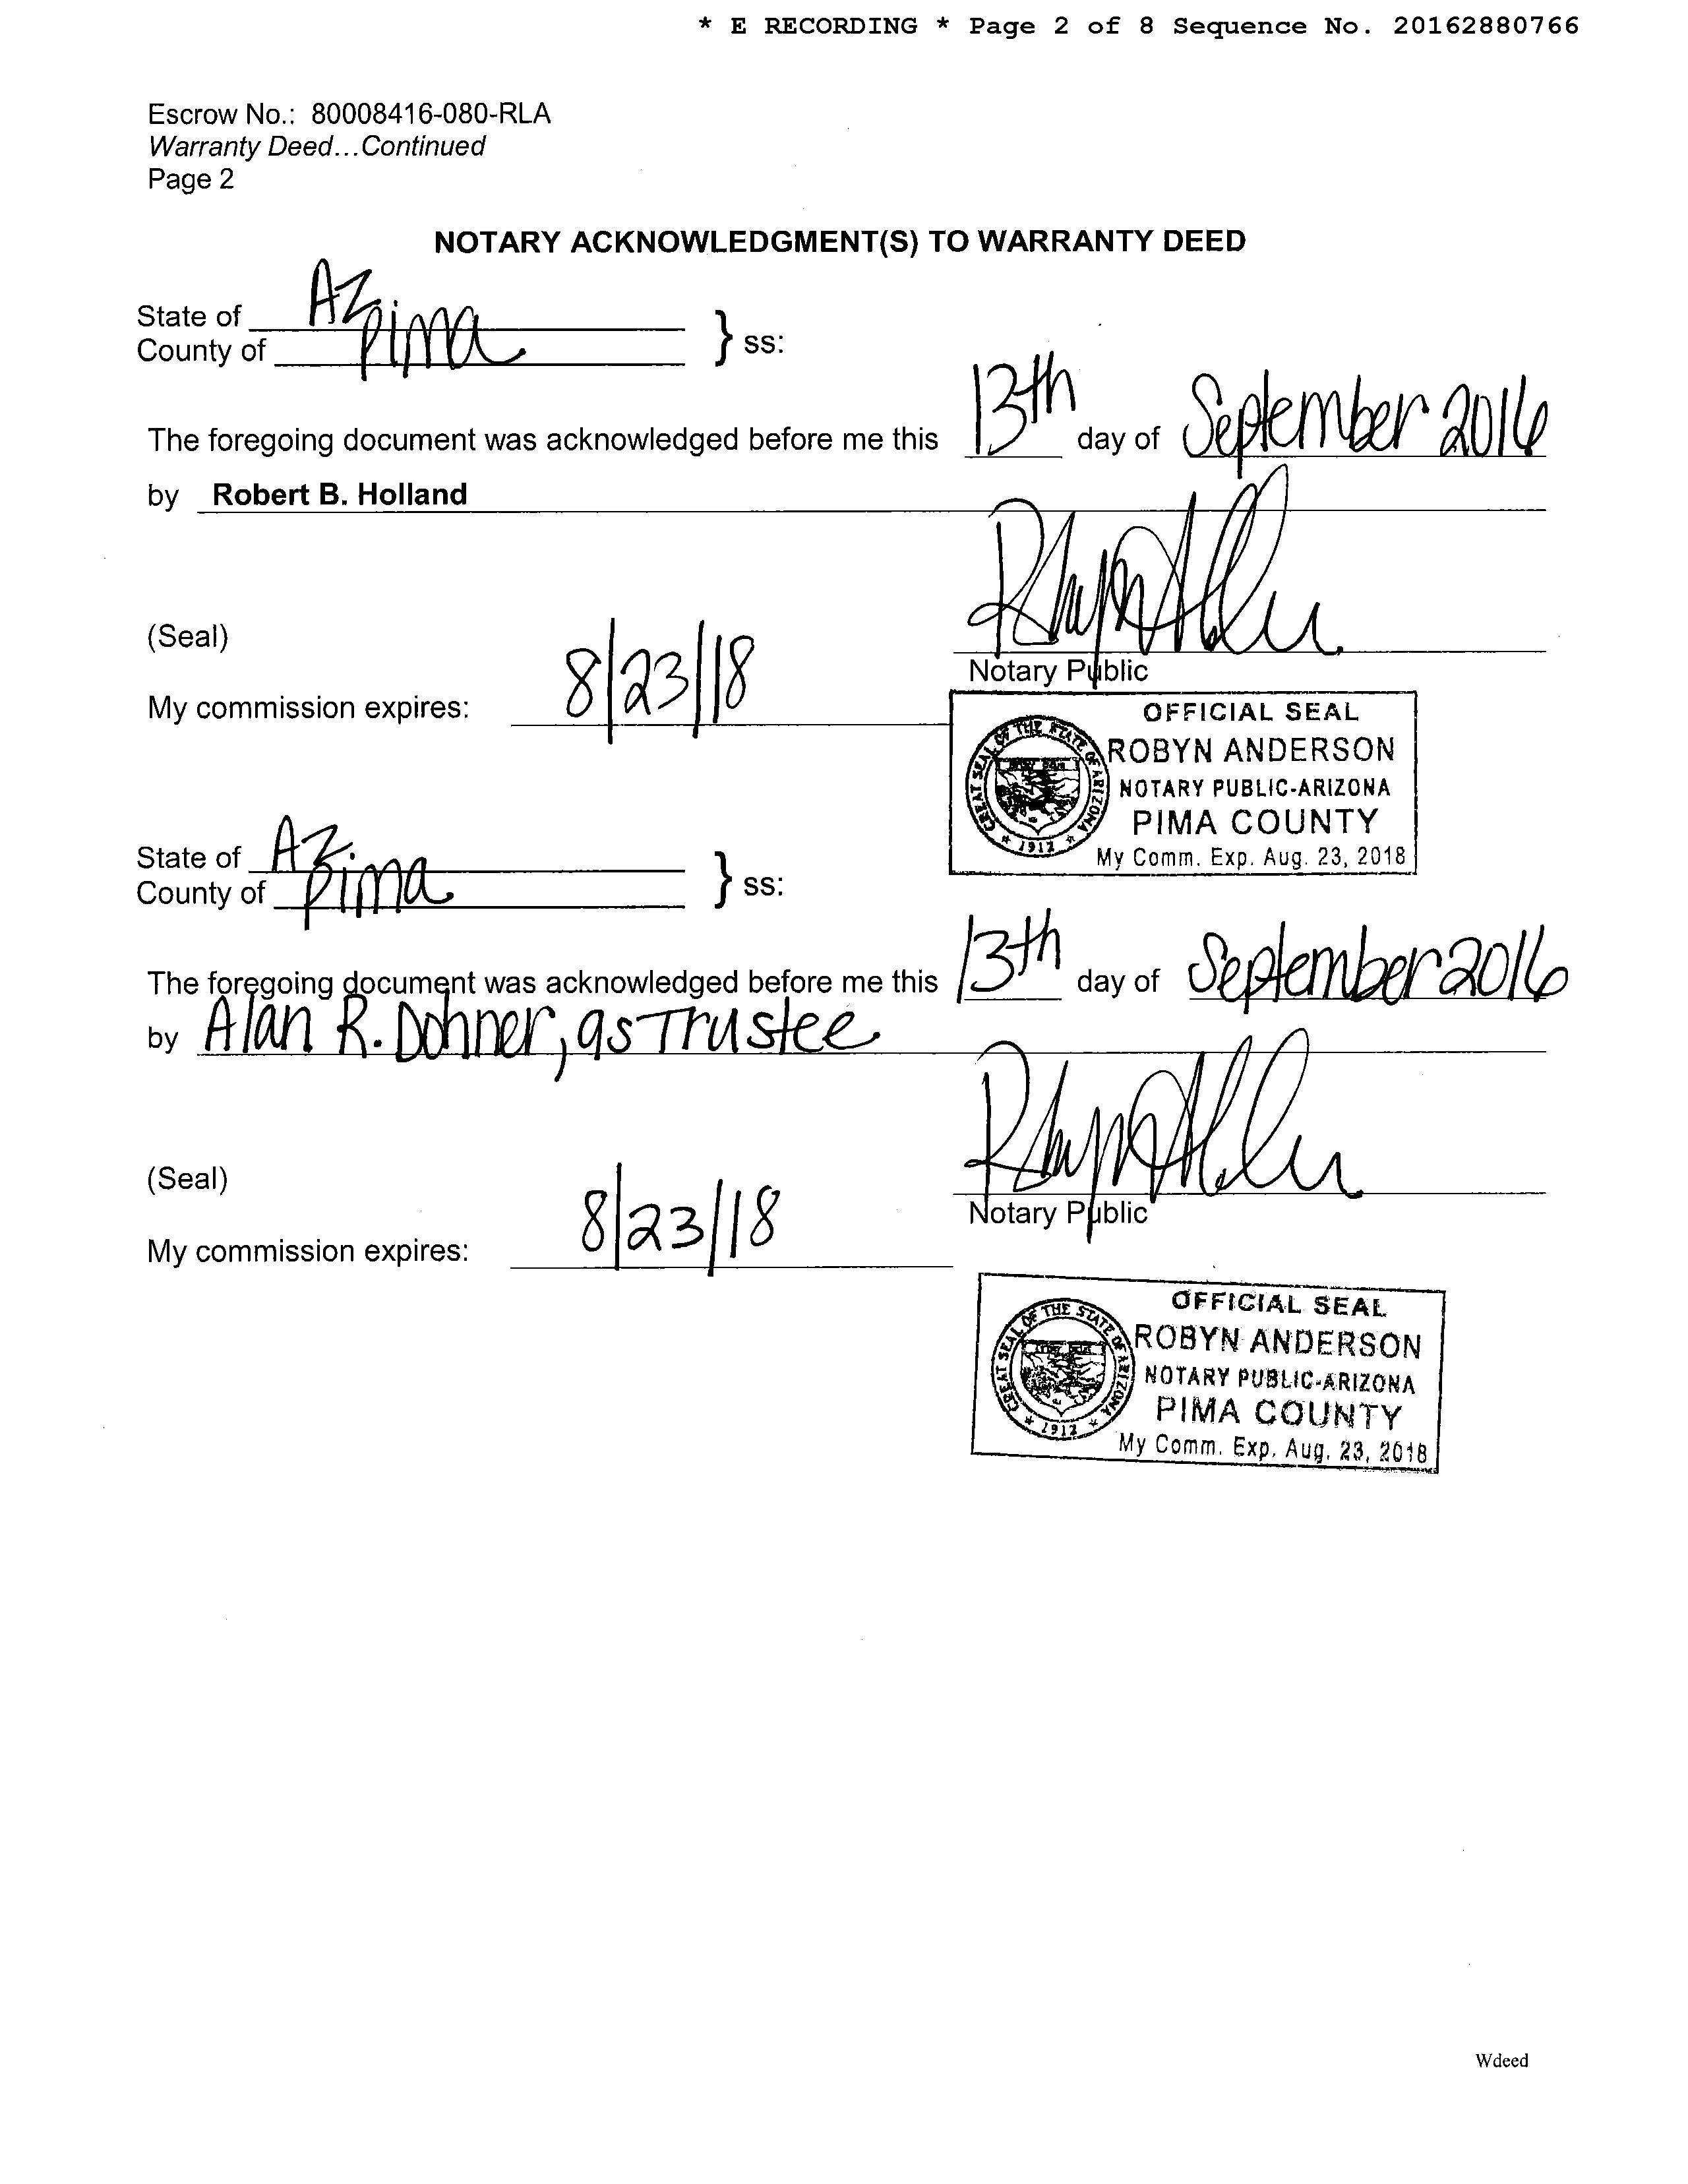 * E RECORDING * Page 2 of 8 Sequence No. 20162880766
Escrow No.: 80008416-080-RLA
Warranty Deed...Continued
Page 2
NOTARY ACKNOWLEDGMENT(S) TO WARRANTY DEED
State of AZ
County of Pima } ss:
The foregoing document was acknowledged before me this 13th day of September 2016
by Robert B. Holland
(Seal)
Notary Public
My commission expires: 8/23/18
OFFICIAL SEAL
ROBYN ANDERSON
NOTARY PUBLIC-ARIZONA
PIMA COUNTY
My Comm. Exp. Aug. 23, 2018
GREAT SEAL OF THE STATE OF ARIZONA
1912
State of AZ
County of Pima } ss:
The foregoing document was acknowledged before me this 13th day of September 2016
by Alan R. Dohner, as Trustee
(Seal)
Notary Public
My commission expires: 8/23/18
OFFICIAL SEAL
ROBYN ANDERSON
NOTARY PUBLIC-ARIZONA
PIMA COUNTY
My Comm. Exp. Aug. 23, 2018
GREAT SEAL OF THE STATE OF ARIZONA
1912
Wdeed